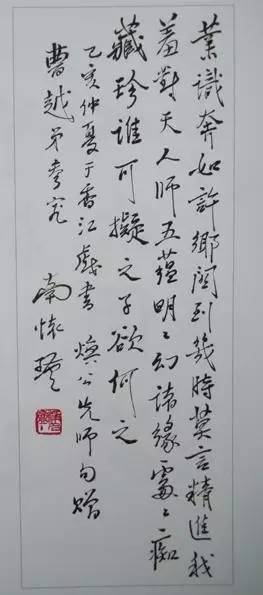 業識奔如許鄉關到幾時莫言精進我
羞對天人師五蘊明々幻諸緣處々痴
藏珍誰可擬之子欲何之
乙亥仲夏于香江戲書 煥公先師句贈
曹越弟存念
南懷瑾